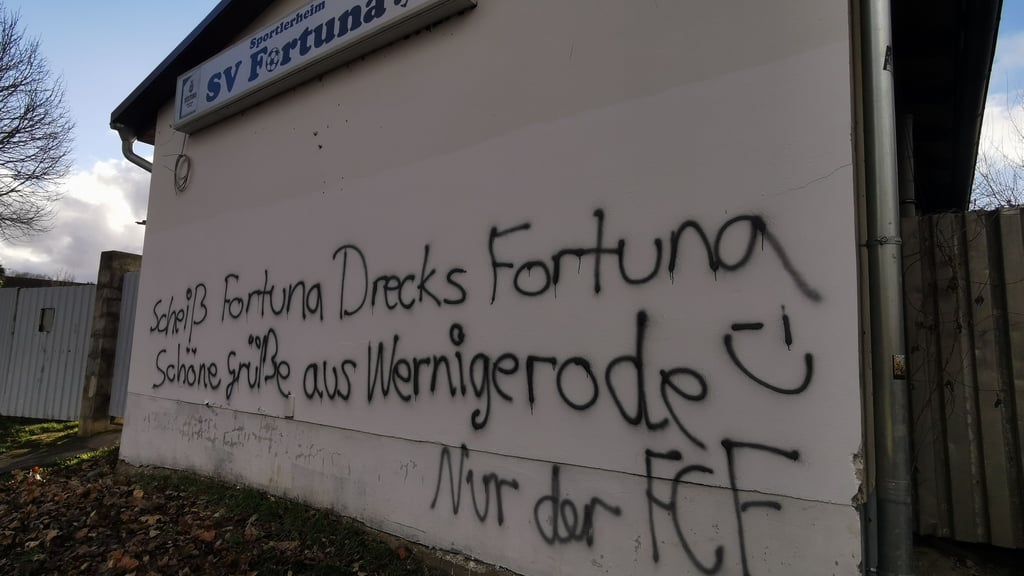 Sportlerheim
SV Fortuna
Scheiß Fortuna Drecks Fortuna
Schöne grüße aus Wernigerode
Nur der FCF